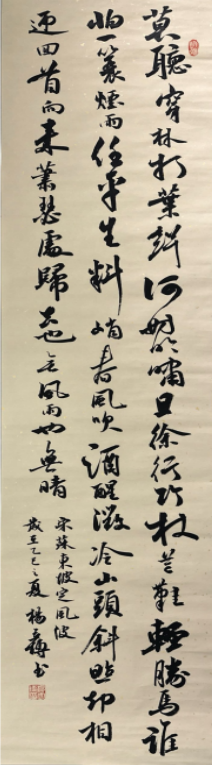 莫聽穿林打葉聲何妨吟嘯且徐行竹杖芒鞋輕勝馬誰
怕一蓑煙雨任平生料峭春風吹酒醒微冷山頭斜照却相
迎回首向來蕭瑟處歸去也无風雨也無晴
宋蘇東坡定風波
歲在乙巳之夏楊書